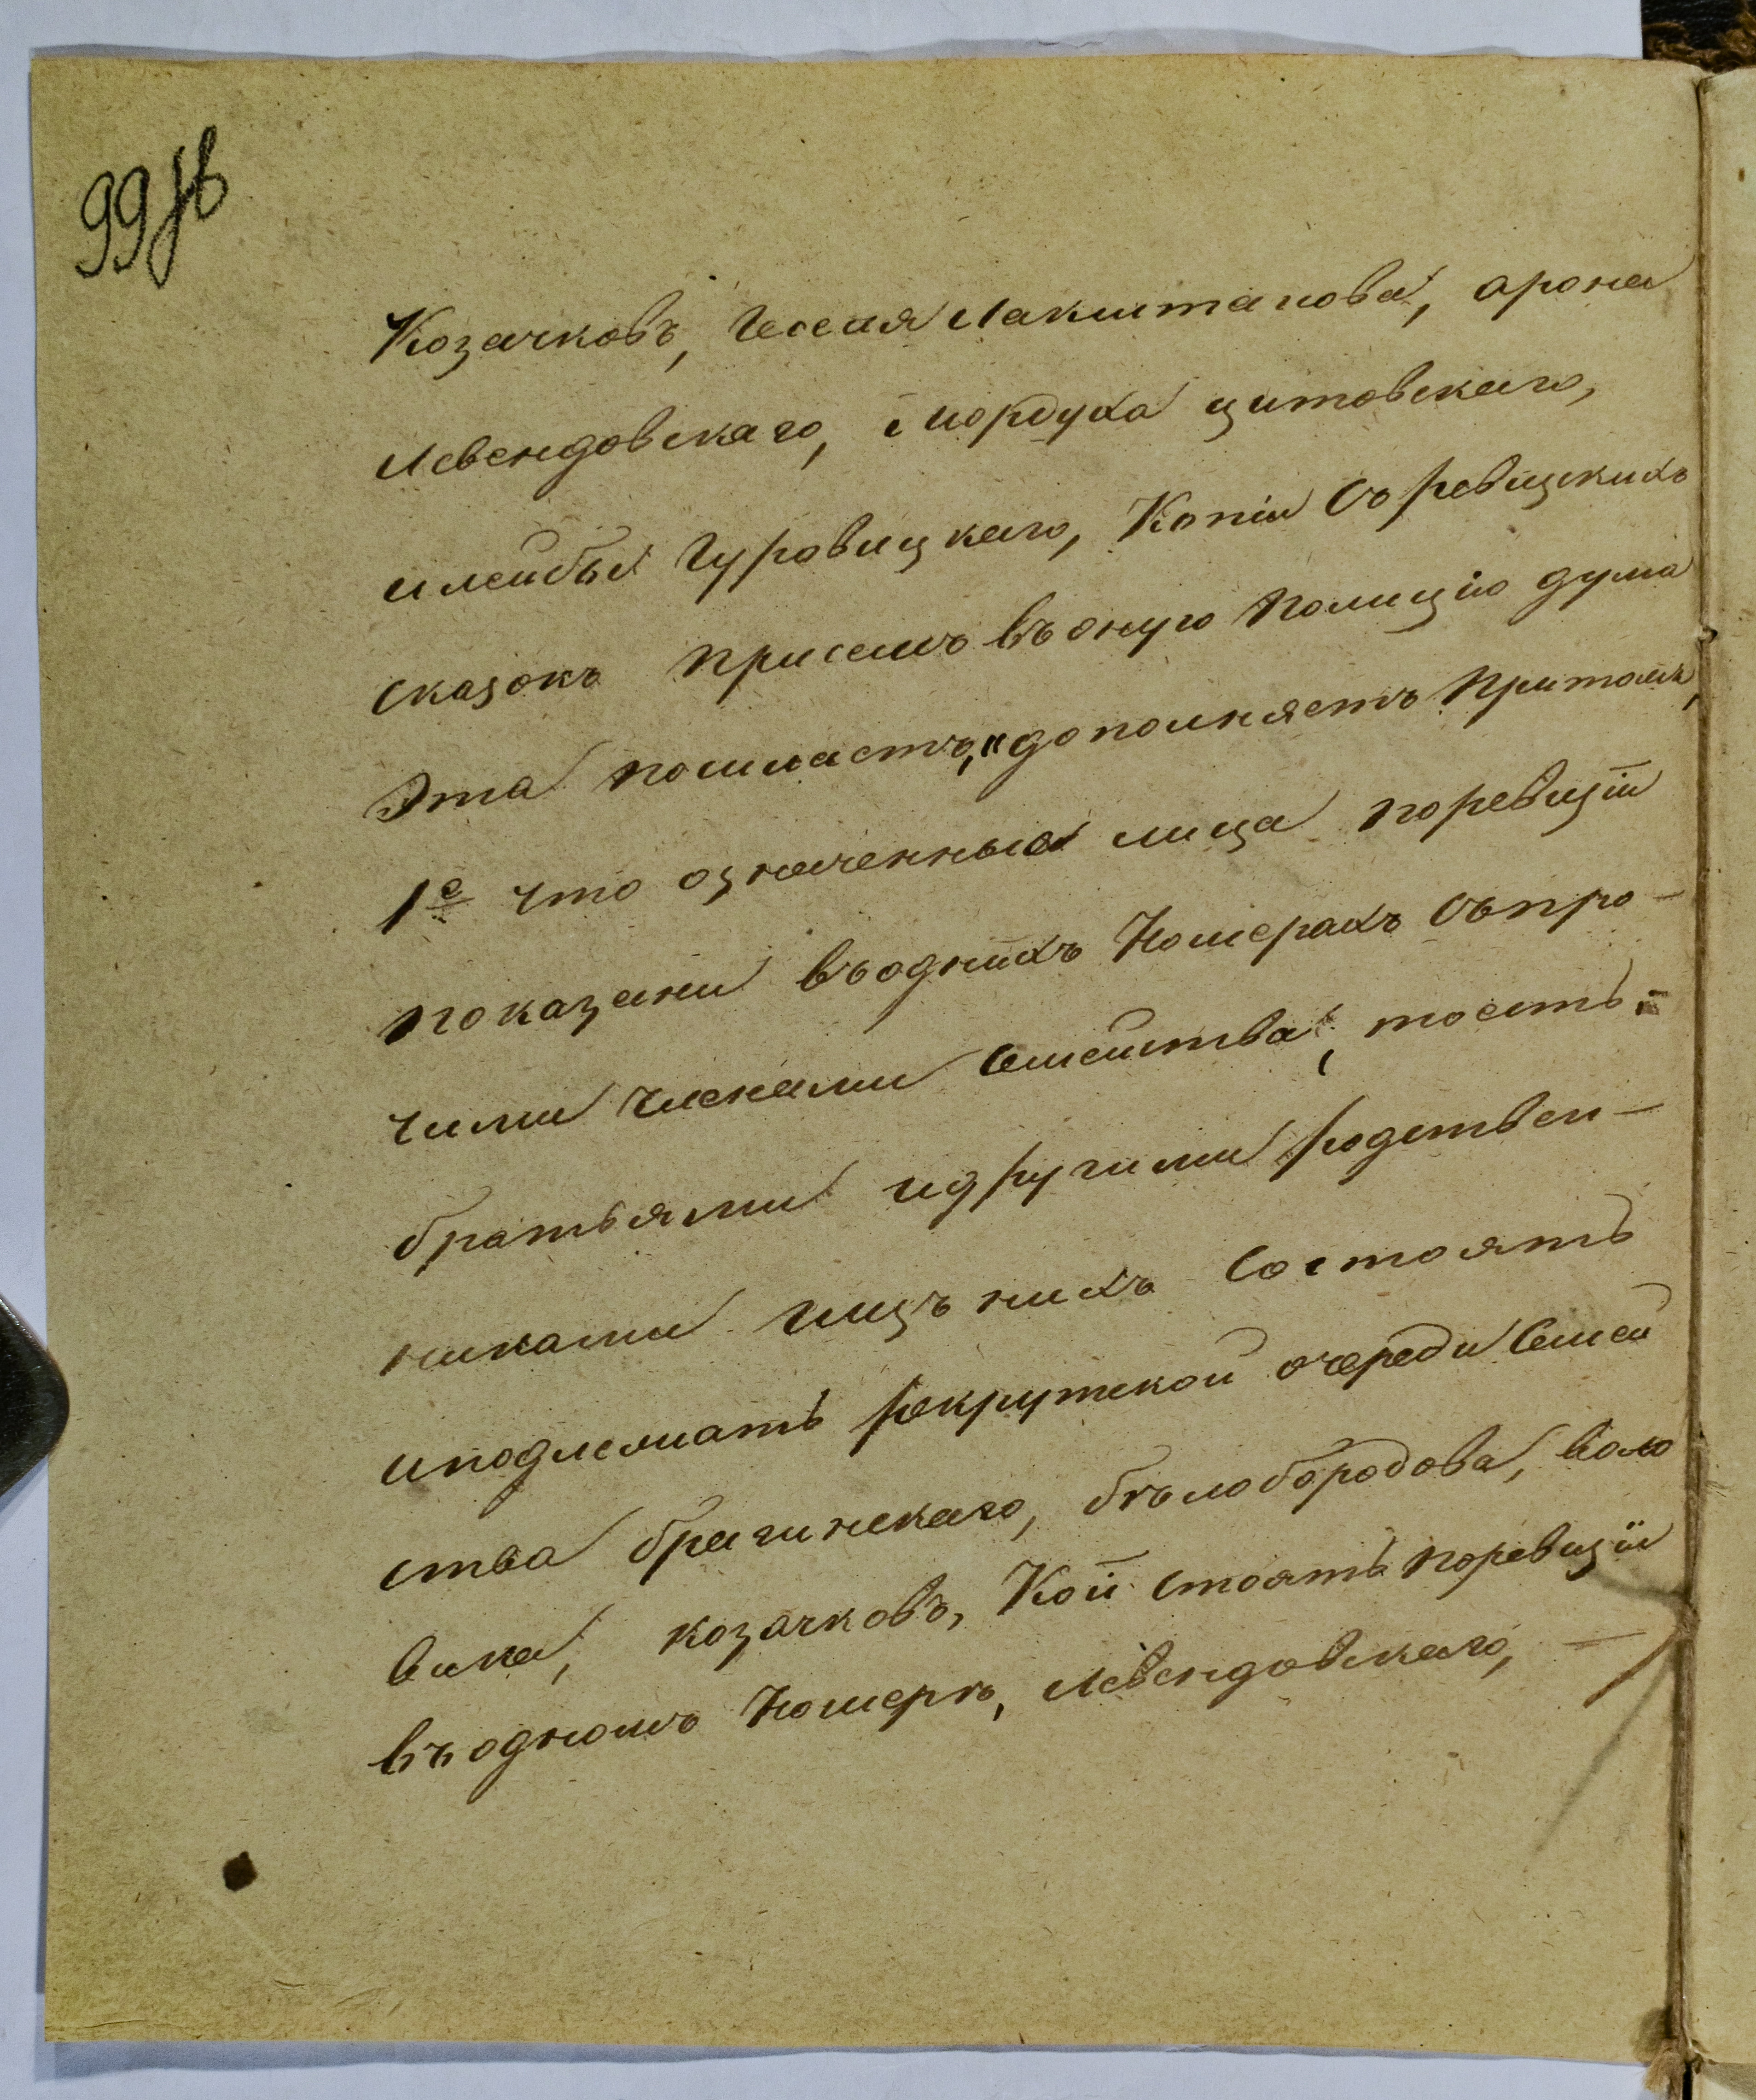 99 об
Козачковъ, Іоселя Лакшманова, Арона
Левендовскаго, Мордуха Цитовскаго,
и Лейбы Гуровицкаго, Копіи съ ревизскихъ
сказокъ при семъ въ оную полицію Дума
эта помчасть, дополняетъ притомъ,
1е что означенныя лица по ревизіи
показани въ однихъ Номерахъ съ про-
чими членами семейства, то есть:
братьями и другими родствен-
никами и изъ нихъ состоятъ
и подлежатъ рекрутской очереди Семей
ства Брагинскаго, Бѣлобородова, Воло
вика, Козачковъ, Кои стоятъ по ревизіи
въ одномъ Номерѣ, Левендовскаго, —